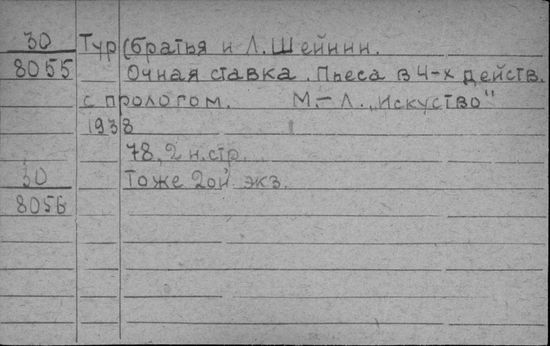 30 Тур (братья и Л. Шейнин.
8055 Очная ставка. Пьеса в 4-х действ.
с прологом. М.-Л. „Искуство"
1938
78, 2 н. стр.
30 Тоже 2ой экз.
8056